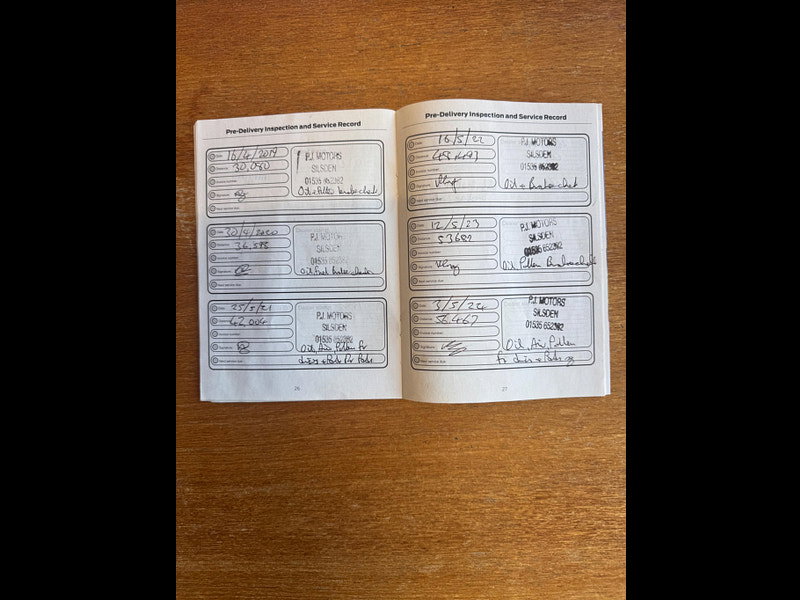 Pre-Delivery Inspection and Service Record
Date 16/4/2019
Distance 30,050
Invoice number
Signature
Next service due
P.J. MOTORS
SILSDEN
01535 652382
Oil + Pollen Brake check
Date 30/4/2020
Distance 36,588
Invoice number
Signature
Next service due
P.J. MOTORS
SILSDEN
01535 652382
Oil Fuel Brake check
Date 25/5/21
Distance 42,004
Invoice number
Signature
Next service due
P.J. MOTORS
SILSDEN
01535 652382
Oil, Air, Pollen Fr
discs + Pads Rr Pads
26
Pre-Delivery Inspection and Service Record
Date 16/5/22
Distance
Invoice number
Signature
Next service due
P.J. MOTORS
SILSDEN
01535 652382
Oil + Brake check
Date 12/5/23
Distance 53682
Invoice number
Signature
Next service due
P.J. MOTORS
SILSDEN
01535 652382
Oil Pollen Brake check
Date 3/5/24
Distance 58,467
Invoice number
Signature
Next service due
P.J. MOTORS
SILSDEN
01535 652382
Oil, Air, Pollen
Fr discs + Pads
27